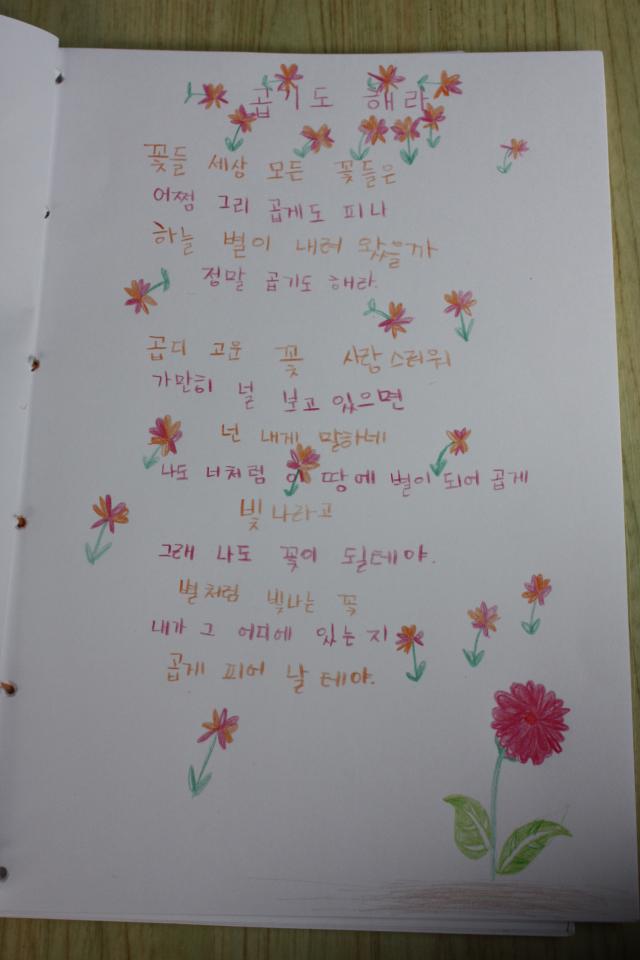 곱기도 해라
꽃들 세상 모든 꽃들은
어쩜 그리 곱게도 피나
하늘 별이 내려 왔을까
정말 곱기도 해라.
곱디 고운 꽃 사랑스러워
가만히 널 보고 있으면
넌 내게 말하네
나도 너처럼 이 땅에 별이 되어 곱게
빛나라고
그래 나도 꽃이 될테야.
별처럼 빛나는 꽃
내가 그 어디에 있는지
곱게 피어 날테야.